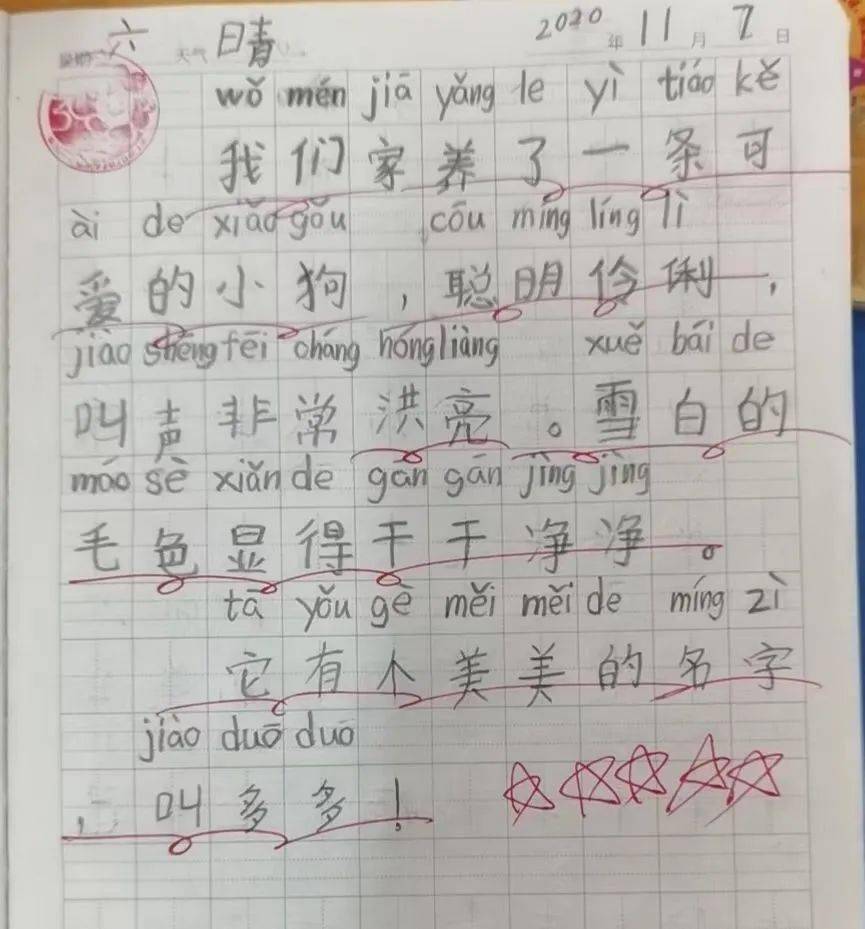 星期六 天气 晴 2020年11月7日
wǒ mén jiā yǎng le yì tiáo kě
我们家养了一条可
ài de xiǎo gǒu cōu míng líng lì
爱的小狗，聪明伶俐，
jiào shēng fēi cháng hóng liàng xuě bái de
叫声非常洪亮。雪白的
máo sè xiǎn de gān gān jìng jìng
毛色显得干干净净。
tā yǒu gè měi měi de míng zì
它有个美美的名字
jiào duō duō
，叫多多！